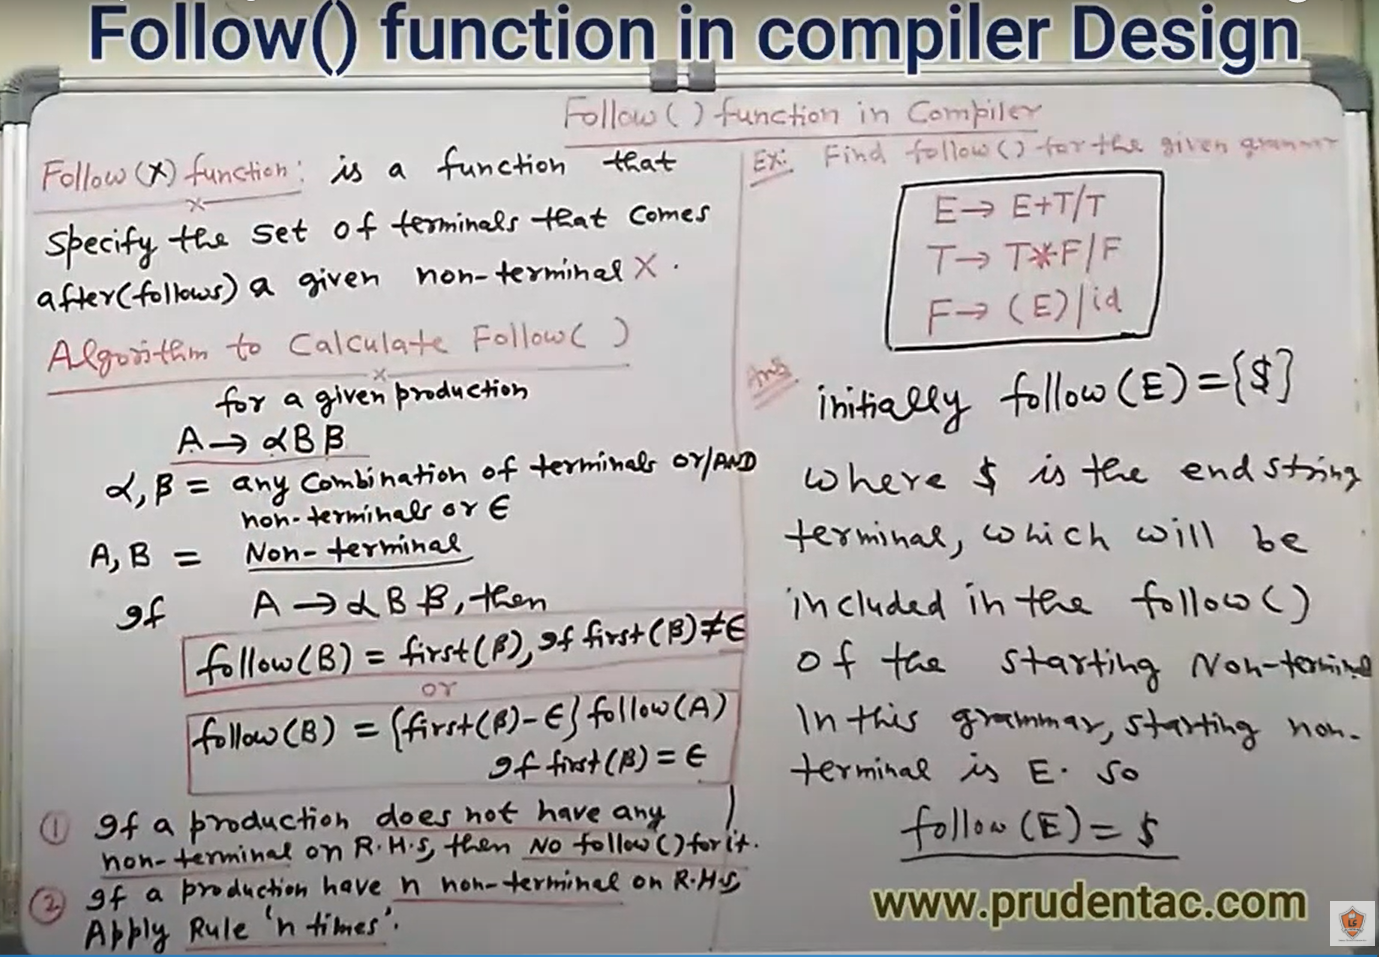 Follow() function in compiler Design
Follow( ) function in Compiler
Follow(X) function: is a function that
specify the set of terminals that comes
after(follows) a given non-terminal X.
Algorithm to Calculate Follow( )
for a given production
A → αBβ
α, β = any combination of terminals or/AND
non-terminals or ϵ
A, B = Non-terminal
If A → αBβ, then
follow(B) = first(β), If first(β) ≠ ϵ
or
follow(B) = {first(β)-ϵ} follow(A)
If first(β) = ϵ
① If a production does not have any
non-terminal on R.H.S, then No follow() for it.
② If a production have n non-terminal on R.H.S,
Apply Rule 'n times'.
Ex: Find follow() for the given grammer
E → E+T/T
T → T*F/F
F → (E)/id
Ans. initially follow(E)={$}
where $ is the end string
terminal, which will be
included in the follow()
of the starting Non-terminal
In this grammar, starting non-
terminal is E. So
follow(E) = $
www.prudentac.com